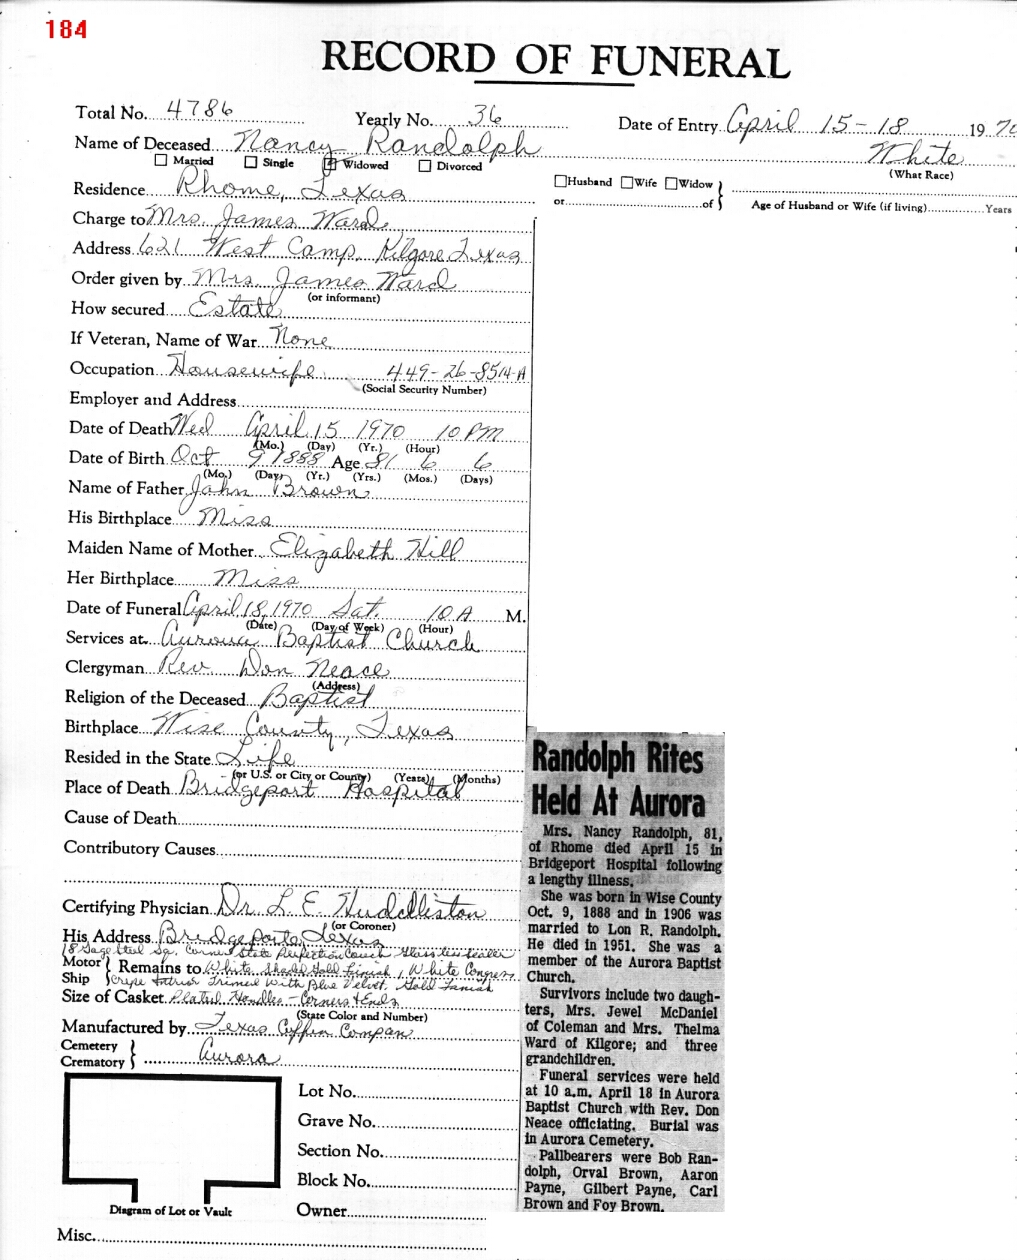 184
RECORD OF FUNERAL
Total No. 4786 Yearly No. 36 Date of Entry April 15-18 1970
Name of Deceased Nancy Randolph White
Married Single Widowed Divorced (What Race)
Residence Rhome, Texas Husband Wife Widow
or of Age of Husband or Wife (if living) Years
Charge to Mrs. James Ward
Address 621 West Camp. Kilgore Texas
Order given by Mrs. James Ward
(or informant)
How secured Estate
If Veteran, Name of War None
Occupation Housewife 449-26-8514-A
(Social Security Number)
Employer and Address
Date of Death Wed April 15 1970 10 PM
(Mo.) (Day) (Yr.) (Hour)
Date of Birth Oct 9 1888 Age 81 6 6
(Mo.) (Day) (Yr.) (Yrs.) (Mos.) (Days)
Name of Father John Brown
His Birthplace Miss
Maiden Name of Mother Elizabeth Hill
Her Birthplace Miss
Date of Funeral April 18, 1970 Sat. 10 A M.
(Date) (Day of Week) (Hour)
Services at Aurora Baptist Church
Clergyman Rev. Don Neace
(Address)
Religion of the Deceased Baptist
Birthplace Wise County, Texas
Resided in the State Life
(or U.S. or City or County) (Years) (Months)
Place of Death Bridgeport Hospital
Cause of Death
Contributory Causes
Certifying Physician Dr. L. E. Huddleston
(or Coroner)
His Address Bridgeport, Texas
18 Gage Steel Sq. Corner State Perfection Couch Glassless Sealer
Motor Ship Remains to White Shadd Gold Finish, White Congress
Crepe Interior Trimed With Blue Velvet. Gold Finish
Size of Casket Plated Handles - Corners & Ends
(State Color and Number)
Manufactured by Texas Coffin Compan
Cemetery
Crematory Aurora
Lot No.
Grave No.
Section No.
Block No.
Owner
Diagram of Lot or Vault
Misc.
Randolph Rites
Held At Aurora
Mrs. Nancy Randolph, 81,
of Rhome died April 15 in
Bridgeport Hospital following
a lengthy illness.
She was born in Wise County
Oct. 9, 1888 and in 1906 was
married to Lon R. Randolph.
He died in 1951. She was a
member of the Aurora Baptist
Church.
Survivors include two daugh-
ters, Mrs. Jewel McDaniel
of Coleman and Mrs. Thelma
Ward of Kilgore; and three
grandchildren.
Funeral services were held
at 10 a.m. April 18 in Aurora
Baptist Church with Rev. Don
Neace officiating. Burial was
in Aurora Cemetery.
Pallbearers were Bob Ran-
dolph, Orval Brown, Aaron
Payne, Gilbert Payne, Carl
Brown and Foy Brown.